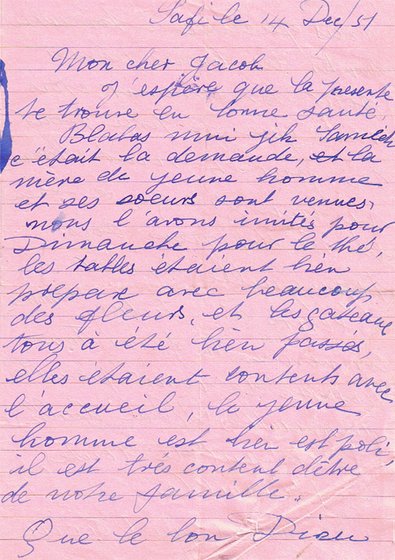 Safi le 14 Dec/51
Mon cher Jacob
J'espère que la presente
te trouve en bonne santé,
Blatas mni jik Samedi
c'était la demande, et la
mère de jeune homme
et ses soeurs sont venues,
nous l'avons invités pour
Dimanche pour le thé,
les tables étaient bien
prepare avec beaucoup
des fleurs, et les gateaux
tous à été bien passés,
elles étaient contents avec
l'accueil, le jeune
homme est bien est poli,
il est trés content d'être
de notre famille.
Que le bon Dieu